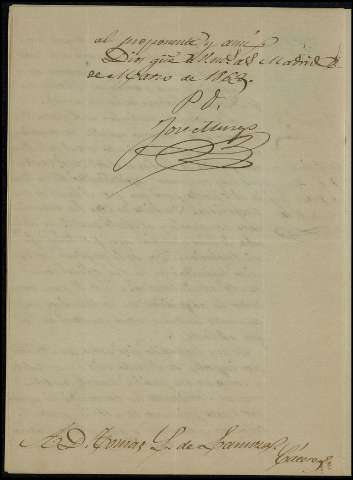 al proponente y a mi
Dios gue á Vmd. as. Madrid 8
de Marzo de 1863.
P. O.
José Murga
A D. Tomas L. de Zamora.